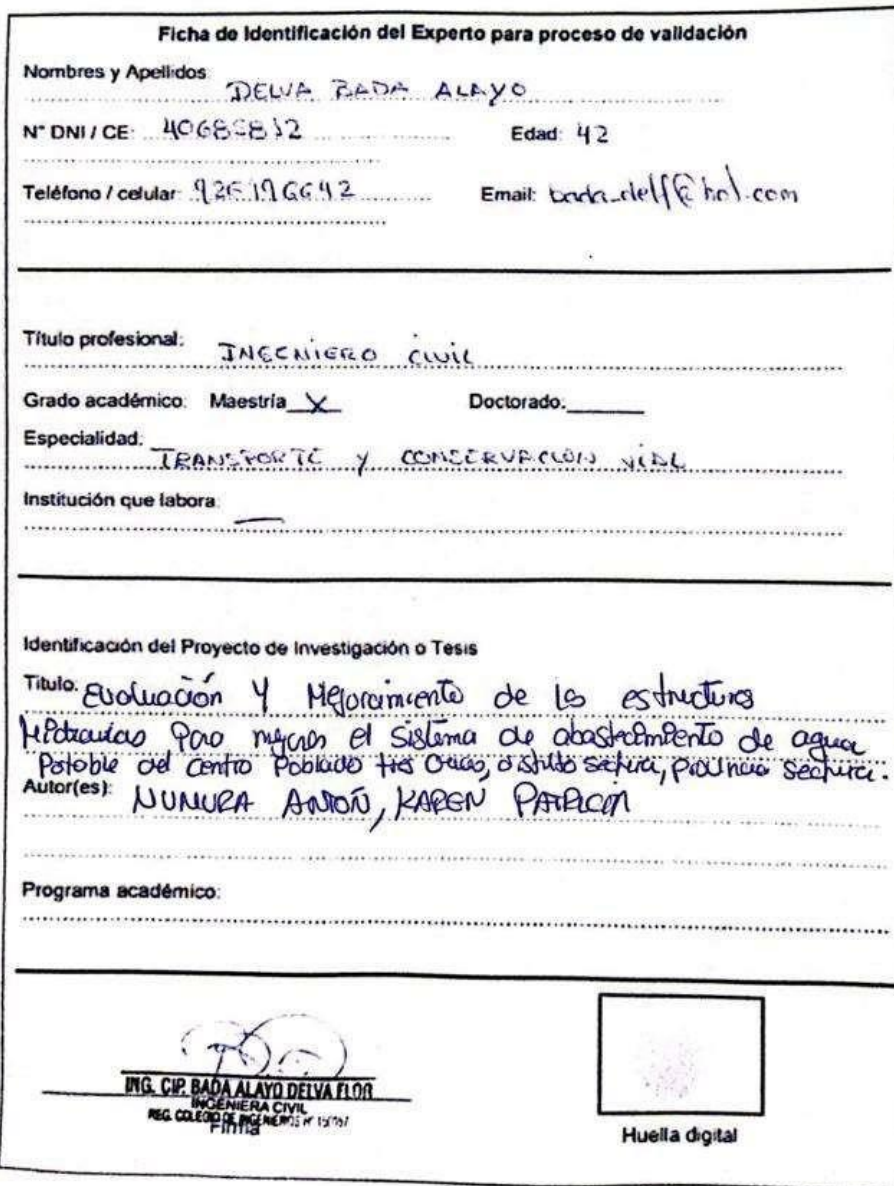 Ficha de Identificación del Experto para proceso de validación
Nombres y Apellidos:
DELVA BADA ALAYO
N° DNI / CE: Edad: 42
Teléfono / celular: Email:
Título profesional:
INGENIERO CIVIL
Grado académico: Maestría X Doctorado:
Especialidad:
TRANSPORTE Y CONSERVACION VIAL
Institución que labora:
Identificación del Proyecto de Investigación o Tesis
Título: Evaluación y Mejoramiento de las estructuras
Hidraulicas Para mejorar el sistema de abastecimiento de agua
Potable del Centro Poblado tres distrito sechura, provincia sechura.
Autor(es): NUNURA ANTÓN, KAREN PATRICIA
Programa académico:
ING. CIP. BADA ALAYO DELVA FLOR
INGENIERA CIVIL
REG. COLEGIO DE INGENIEROS N°
Firma
Huella digital